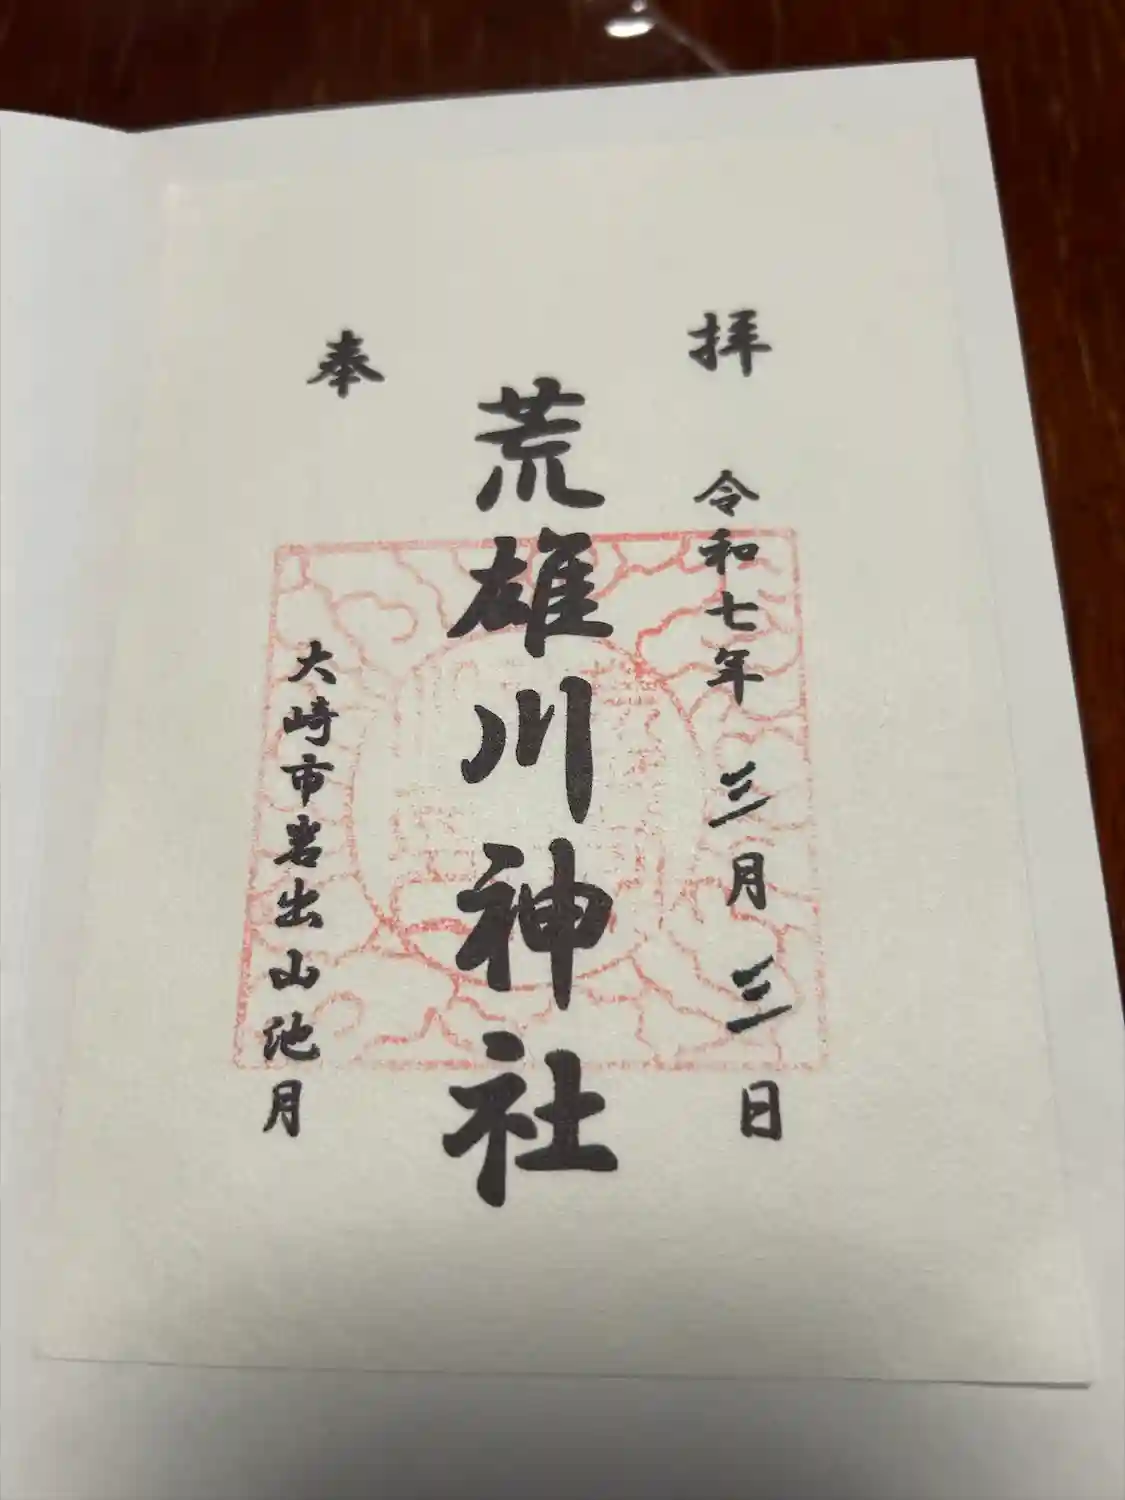 拝
令和七年 三月 三日
荒雄川神社
奉
大崎市岩出山池月